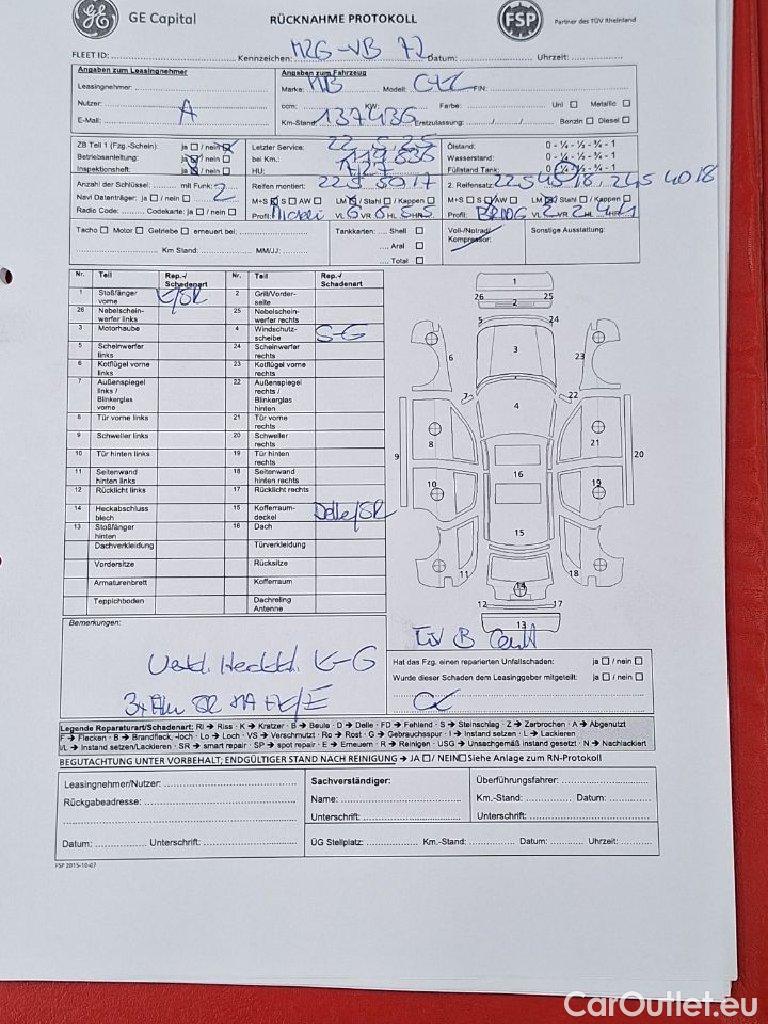 GE Capital RÜCKNAHME PROTOKOLL FSP Partner des TÜV Rheinland
FLEET ID: Kennzeichen: MZG-VB 72 Datum: Uhrzeit:
Angaben zum Leasingnehmer Angaben zum Fahrzeug
Leasingnehmer: Marke: MB Modell: FIN:
Nutzer: A ccm: KW: Farbe: Uni □ Metallic □
E-Mail: Km-Stand: 137436 Erstzulassung: / / Benzin □ Diesel □
ZB Teil 1 (Fzg.-Schein): ja □ / nein Letzter Service: 22.5.25 Ölstand: 0 - ¼ - ½ - ¾ - 1
Betriebsanleitung: ja / nein □ bei Km.: 119836 Wasserstand: 0 - ¼ - ½ - ¾ - 1
Inspektionsheft: ja / nein □ HU: Füllstand Tank: 0 - ¼ - ½ - ¾ - 1
Anzahl der Schlüssel: mit Funk: 2 Reifen montiert: 225 50 17 2. Reifensatz: 225 45 18, 245 40 18
Navi Datenträger: ja □ / nein □ M+S S □ AW □ LM / Stahl □ / Kappen □ M+S □ S AW □ LM Stahl □ / Kappen □
Radio Code: Codekarte: ja □ / nein □ Profil: VL 6 VR 6 HL 5 HR 5 Profil: VL 2 VR 2 HL 4 HR 4
Tacho □ Motor □ Getriebe □ erneuert bei: Tankkarten: Shell □ Voll-/Notrad/ Sonstige Ausstattung:
Aral □ Kompressor:
Km Stand: MM/JJ: Total □
Nr. Teil Rep.-/ Schadenart Nr. Teil Rep.-/ Schadenart
1 Stoßfänger vorne K/SR 2 Grill/Vorder-seite
26 Nebelschein-werfer links 25 Nebelschein-werfer rechts
3 Motorhaube 4 Windschutz-scheibe S-G
5 Scheinwerfer links 24 Scheinwerfer rechts
6 Kotflügel vorne links 23 Kotflügel vorne rechts
7 Außenspiegel links / Blinkerglas vorne 22 Außenspiegel rechts / Blinkerglas hinten
8 Tür vorne links 21 Tür vorne rechts
9 Schweller links 20 Schweller rechts
10 Tür hinten links 19 Tür hinten rechts
11 Seitenwand hinten links 18 Seitenwand hinten rechts
12 Rücklicht links 17 Rücklicht rechts
14 Heckabschluss blech 15 Kofferraum-deckel Delle/SR
13 Stoßfänger hinten 16 Dach
Dachverkleidung Türverkleidung
Vordersitze Rücksitze
Armaturenbrett Kofferraum
Teppichboden Dachreling Antenne
1
26 25
2
5 24
3
6 23
7 22
4
8 21
9 20
16
10 19
15
11 18
14
12 17
13
Bemerkungen:
K-G
Hat das Fzg. einen reparierten Unfallschaden: ja □ / nein □
Wurde dieser Schaden dem Leasinggeber mitgeteilt: ja □ / nein □
Legende Reparaturart/Schadenart: RI → Riss · K → Kratzer · B → Beule · D → Delle · FD → Fehlend · S → Steinschlag · Z → Zerbrochen · A → Abgenutzt
F → Flecken · B → Brandfleck, -loch · Lo → Loch · VS → Verschmutzt · Ro → Rost · G → Gebrauchsspur · I → Instand setzen · L → Lackieren
I/L → Instand setzen/Lackieren · SR → smart repair · SP → spot repair · E → Erneuern · R → Reinigen · USG → Unsachgemäß instand gesetzt · N → Nachlackiert
BEGUTACHTUNG UNTER VORBEHALT; ENDGÜLTIGER STAND NACH REINIGUNG → JA □ / NEIN □ Siehe Anlage zum RN-Protokoll
Leasingnehmer/Nutzer: Sachverständiger: Überführungsfahrer:
Rückgabeadresse: Name: Km.-Stand: Datum:
Unterschrift: Unterschrift:
Datum: Unterschrift: ÜG Stellplatz: Km.-Stand: Datum: Uhrzeit:
FSP 2015-10-07
CarOutlet.eu